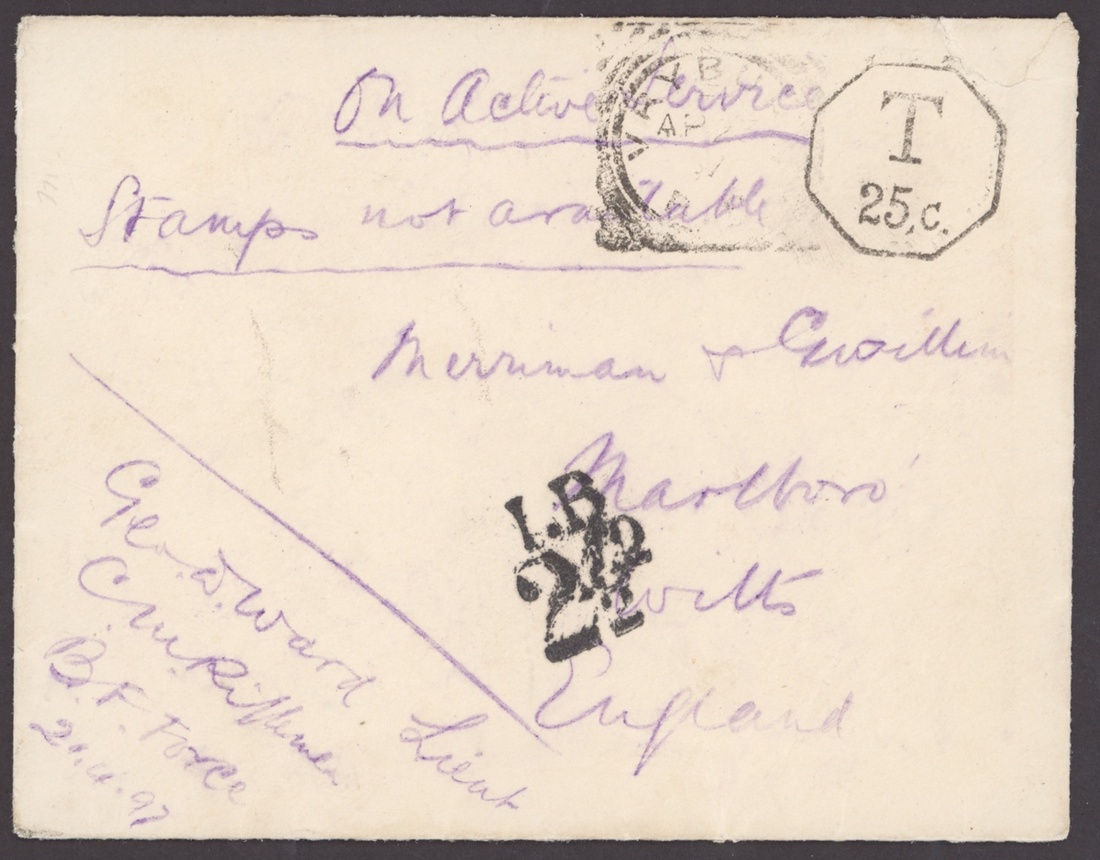 On Active Service
VRYB
AP
T
25.c.
Stamps not available
Merriman & Gwillim
Marlboro'
Wilts
England
I.B.
2½D
Geo. D. Ward Lieut
C. M. Riflemen
B. F. Force
4.97